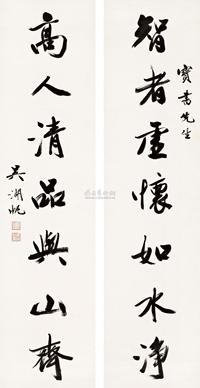 智者虚懷如水净
寶書先生
高人清品與山齊
吴湖帆